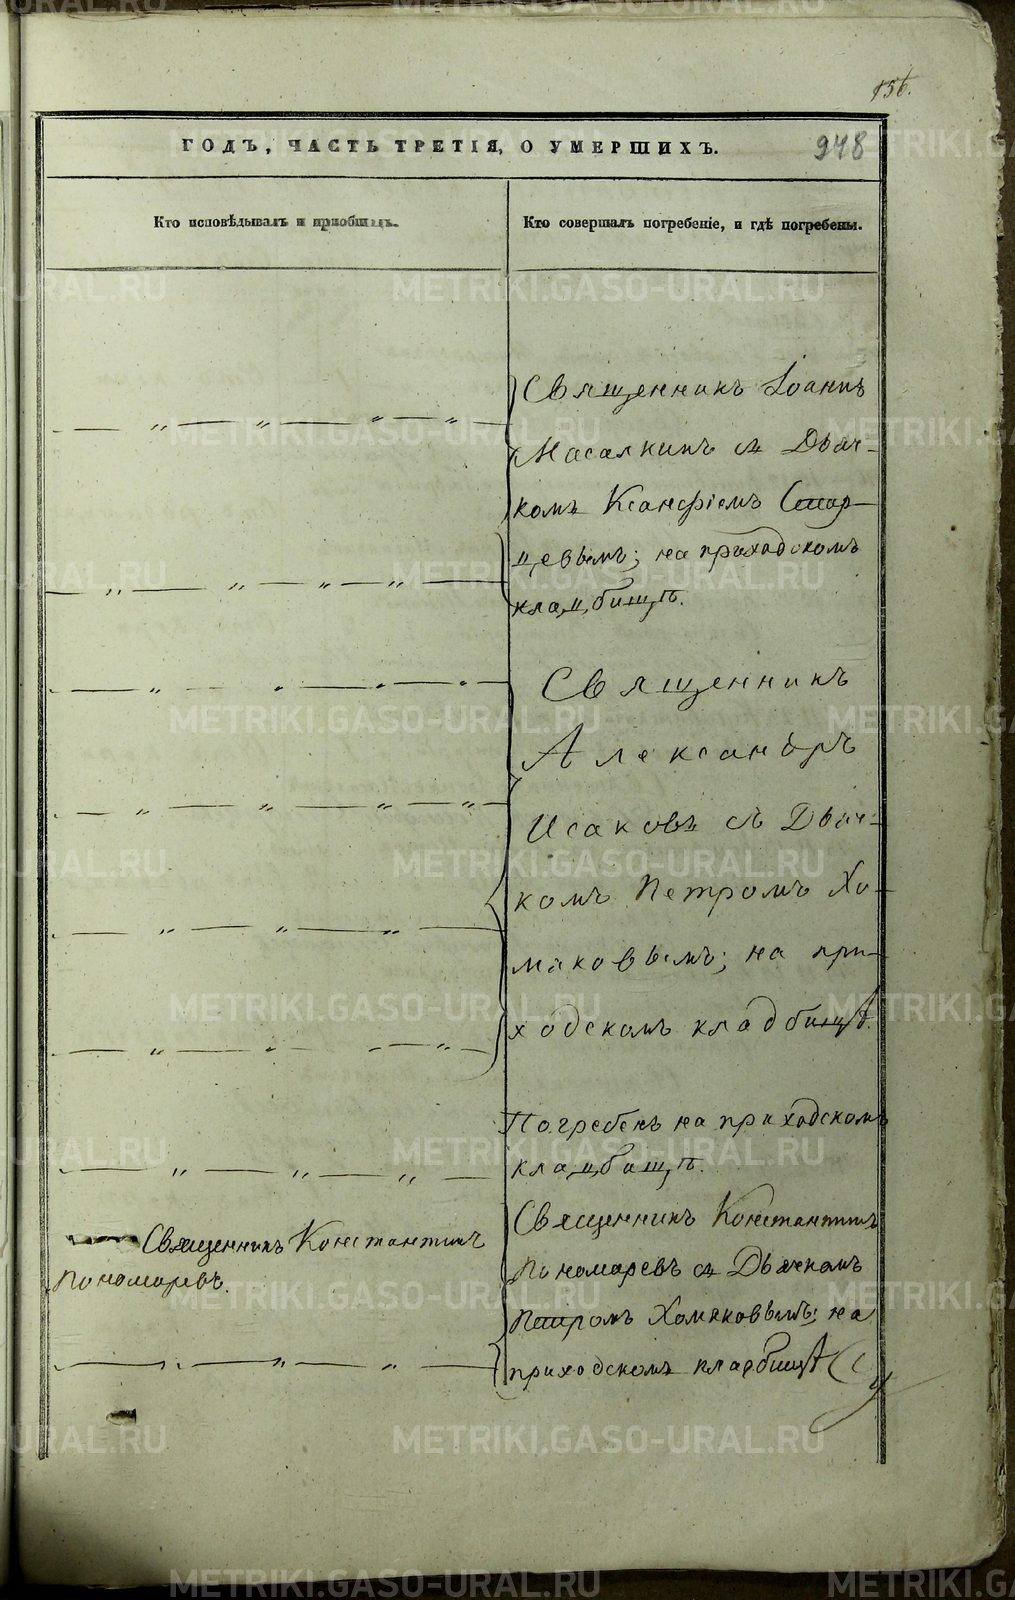 156.
ГОДЪ, ЧАСТЬ ТРЕТІЯ, О УМЕРШИХЪ.
948
Кто исповѣдывалъ и пріобщалъ.
Кто совершалъ погребеніе, и гдѣ погребены.
Священникъ Іоаннъ
Масалкинъ съ Дьяч-
комъ Ксанѳіемъ Стар-
цевымъ; на приходскомъ
кладбищѣ.
Священникъ
Александръ
Исаковъ съ Дьяч-
комъ Петромъ Хо-
мяковымъ; на при-
ходскомъ кладбищѣ.
Погребенъ на приходскомъ
кладбищѣ.
Священникъ Константинъ
Пономаревъ.
Священникъ Константинъ
Пономаревъ съ Дьячкомъ
Петромъ Хомяковымъ; на
приходскомъ кладбищѣ
METRIKI.GASO-URAL.RU